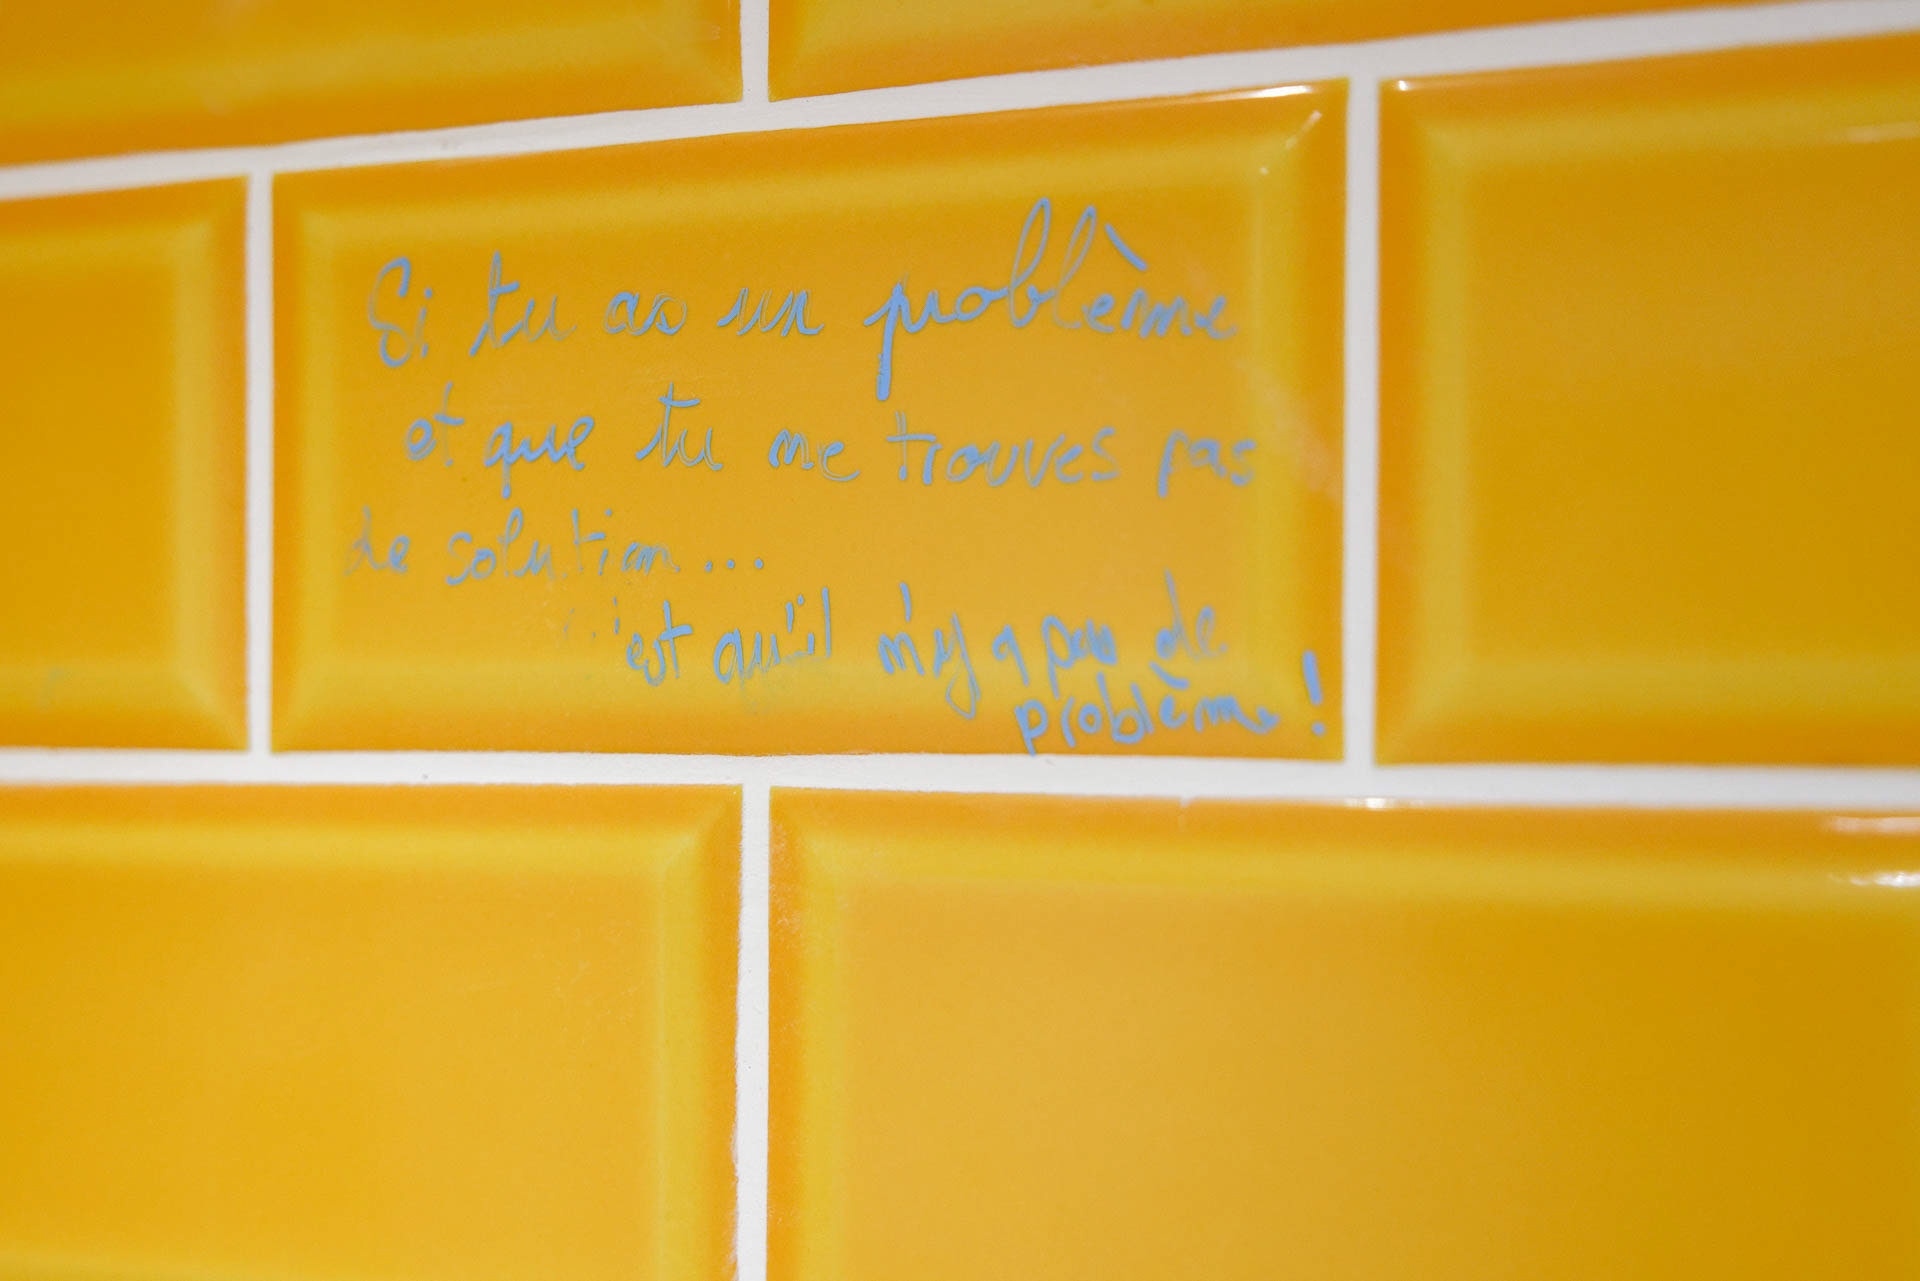 Si tu as un problème
et que tu ne trouves pas
de solution...
c'est qu'il n'y a pas de
problème !